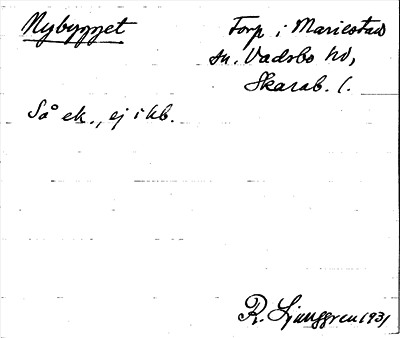 Nybygget
Torp i Mariestad
sn. Vadsbo hd,
Skarab. l.
Så ek., ej i kb.
R. Ljunggren 1931